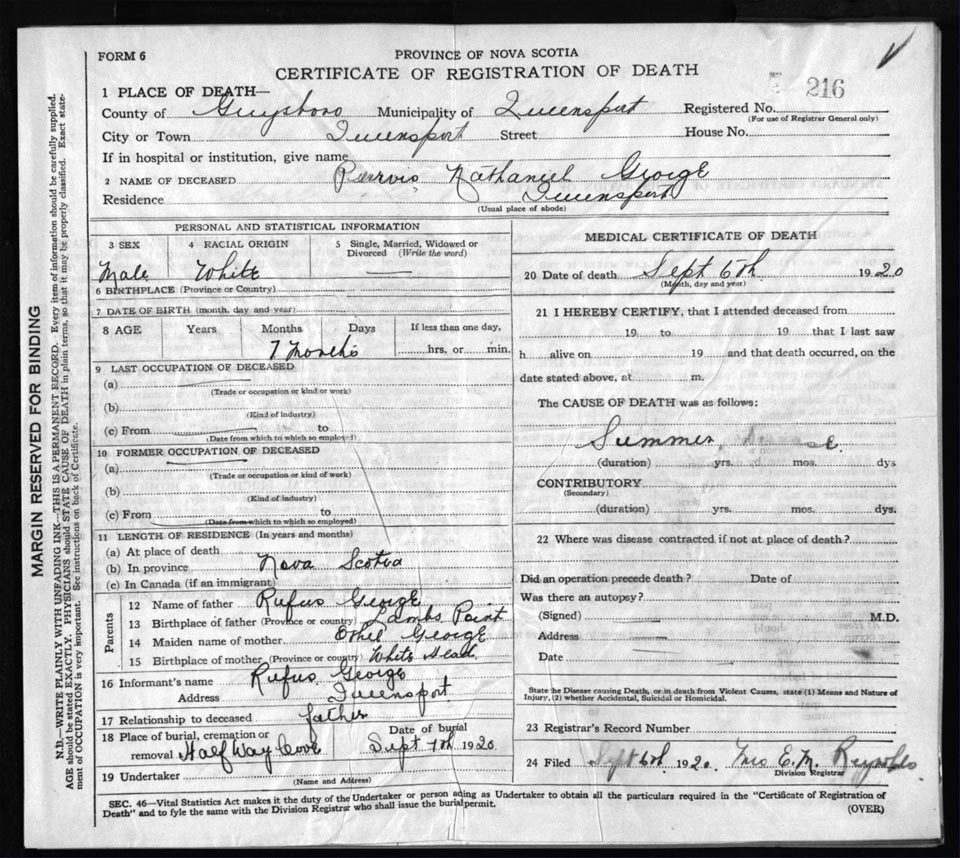 FORM 6
PROVINCE OF NOVA SCOTIA
CERTIFICATE OF REGISTRATION OF DEATH
216
1 PLACE OF DEATH—
County of Guysboro Municipality of Queensport Registered No.
(For use of Registrar General only)
City or Town Queensport Street House No.
If in hospital or institution, give name
2 NAME OF DECEASED Purvis Nathaniel George
Residence Queensport
(Usual place of abode)
PERSONAL AND STATISTICAL INFORMATION
3 SEX 4 RACIAL ORIGIN 5 Single, Married, Widowed or Divorced (Write the word)
Male White —
6 BIRTHPLACE (Province or Country)
7 DATE OF BIRTH (month, day and year)
8 AGE Years Months Days If less than one day,
7 Months hrs, or min.
9 LAST OCCUPATION OF DECEASED
(a)
(Trade or occupation or kind or work)
(b)
(Kind of industry)
(c) From to
(Date from which to which so employed)
10 FORMER OCCUPATION OF DECEASED
(a)
(Trade or occupation or kind of work)
(b)
(Kind of industry)
(c) From to
(Date from which to which so employed)
11 LENGTH OF RESIDENCE (In years and months)
(a) At place of death
(b) In province Nova Scotia
(c) In Canada (if an immigrant)
Parents
12 Name of father Rufus George
13 Birthplace of father (Province or country) Lambs Point
14 Maiden name of mother Ethel George
15 Birthplace of mother (Province or country) White Head
16 Informant's name Rufus George
Address Queensport
17 Relationship to deceased father
18 Place of burial, cremation or removal Half Way Cove Date of burial Sept 7th 1920
19 Undertaker
(Name and Address)
MEDICAL CERTIFICATE OF DEATH
20 Date of death Sept 6th 1920
(Month, day and year)
21 I HEREBY CERTIFY, that I attended deceased from
19 to 19 that I last saw
h alive on 19 and that death occurred, on the
date stated above, at m.
The CAUSE OF DEATH was as follows:
Summer
(duration) yrs. mos. dys
CONTRIBUTORY
(Secondary)
(duration) yrs. mos. dys.
22 Where was disease contracted if not at place of death?
Did an operation precede death? Date of
Was there an autopsy?
(Signed) M.D.
Address
Date
State the Disease causing Death, or in death from Violent Causes, state (1) Means and Nature of
Injury, (2) whether Accidental, Suicidal or Homicidal.
23 Registrar's Record Number
24 Filed Sept 6th 1920. Mrs E. M. Reynolds.
Division Registrar
SEC. 46—Vital Statistics Act makes it the duty of the Undertaker or person acing as Undertaker to obtain all the particulars required in the "Certificate of Registration of
Death" and to fyle the same with the Division Registrar who shall issue the burial permit.
(OVER)
MARGIN RESERVED FOR BINDING
N.B.—WRITE PLAINLY WITH UNFADING INK—THIS IS A PERMANENT RECORD. Every item of information should be carefully supplied.
AGE should be stated EXACTLY. PHYSICIANS should STATE CAUSE OF DEATH in plain terms, so that it may be properly classified. Exact statement of OCCUPATION is very important. See instructions on back of Certificate.